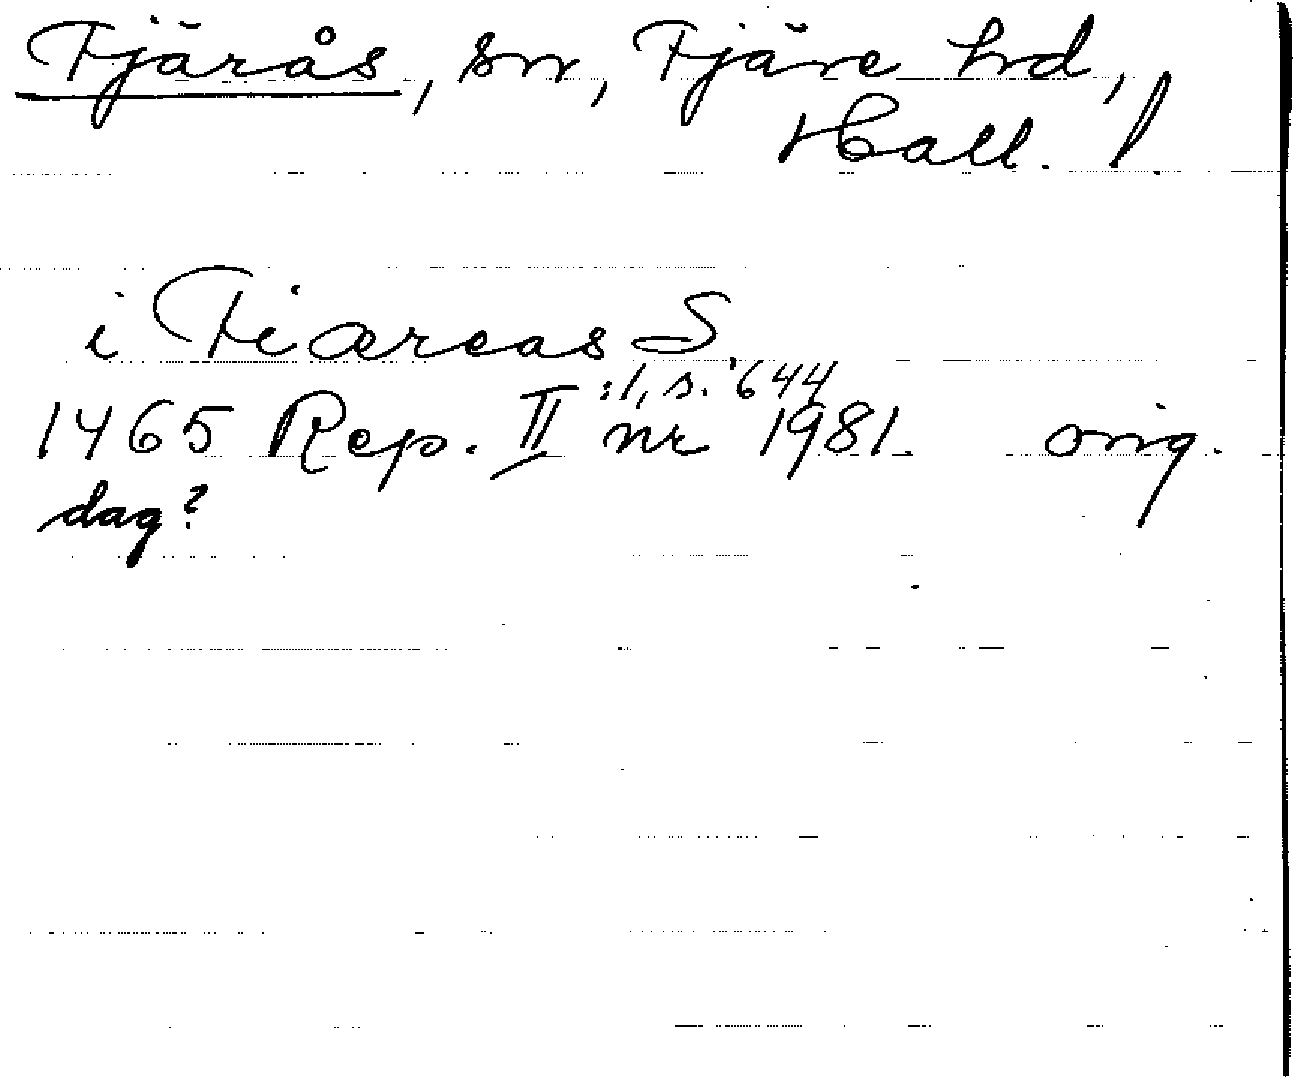 Fjärås, sn, Fjäre hd,
Hall. l.
i Fiæreas S
:1, s. 644
1465 Rep. II nr 1981. orig.
dag?